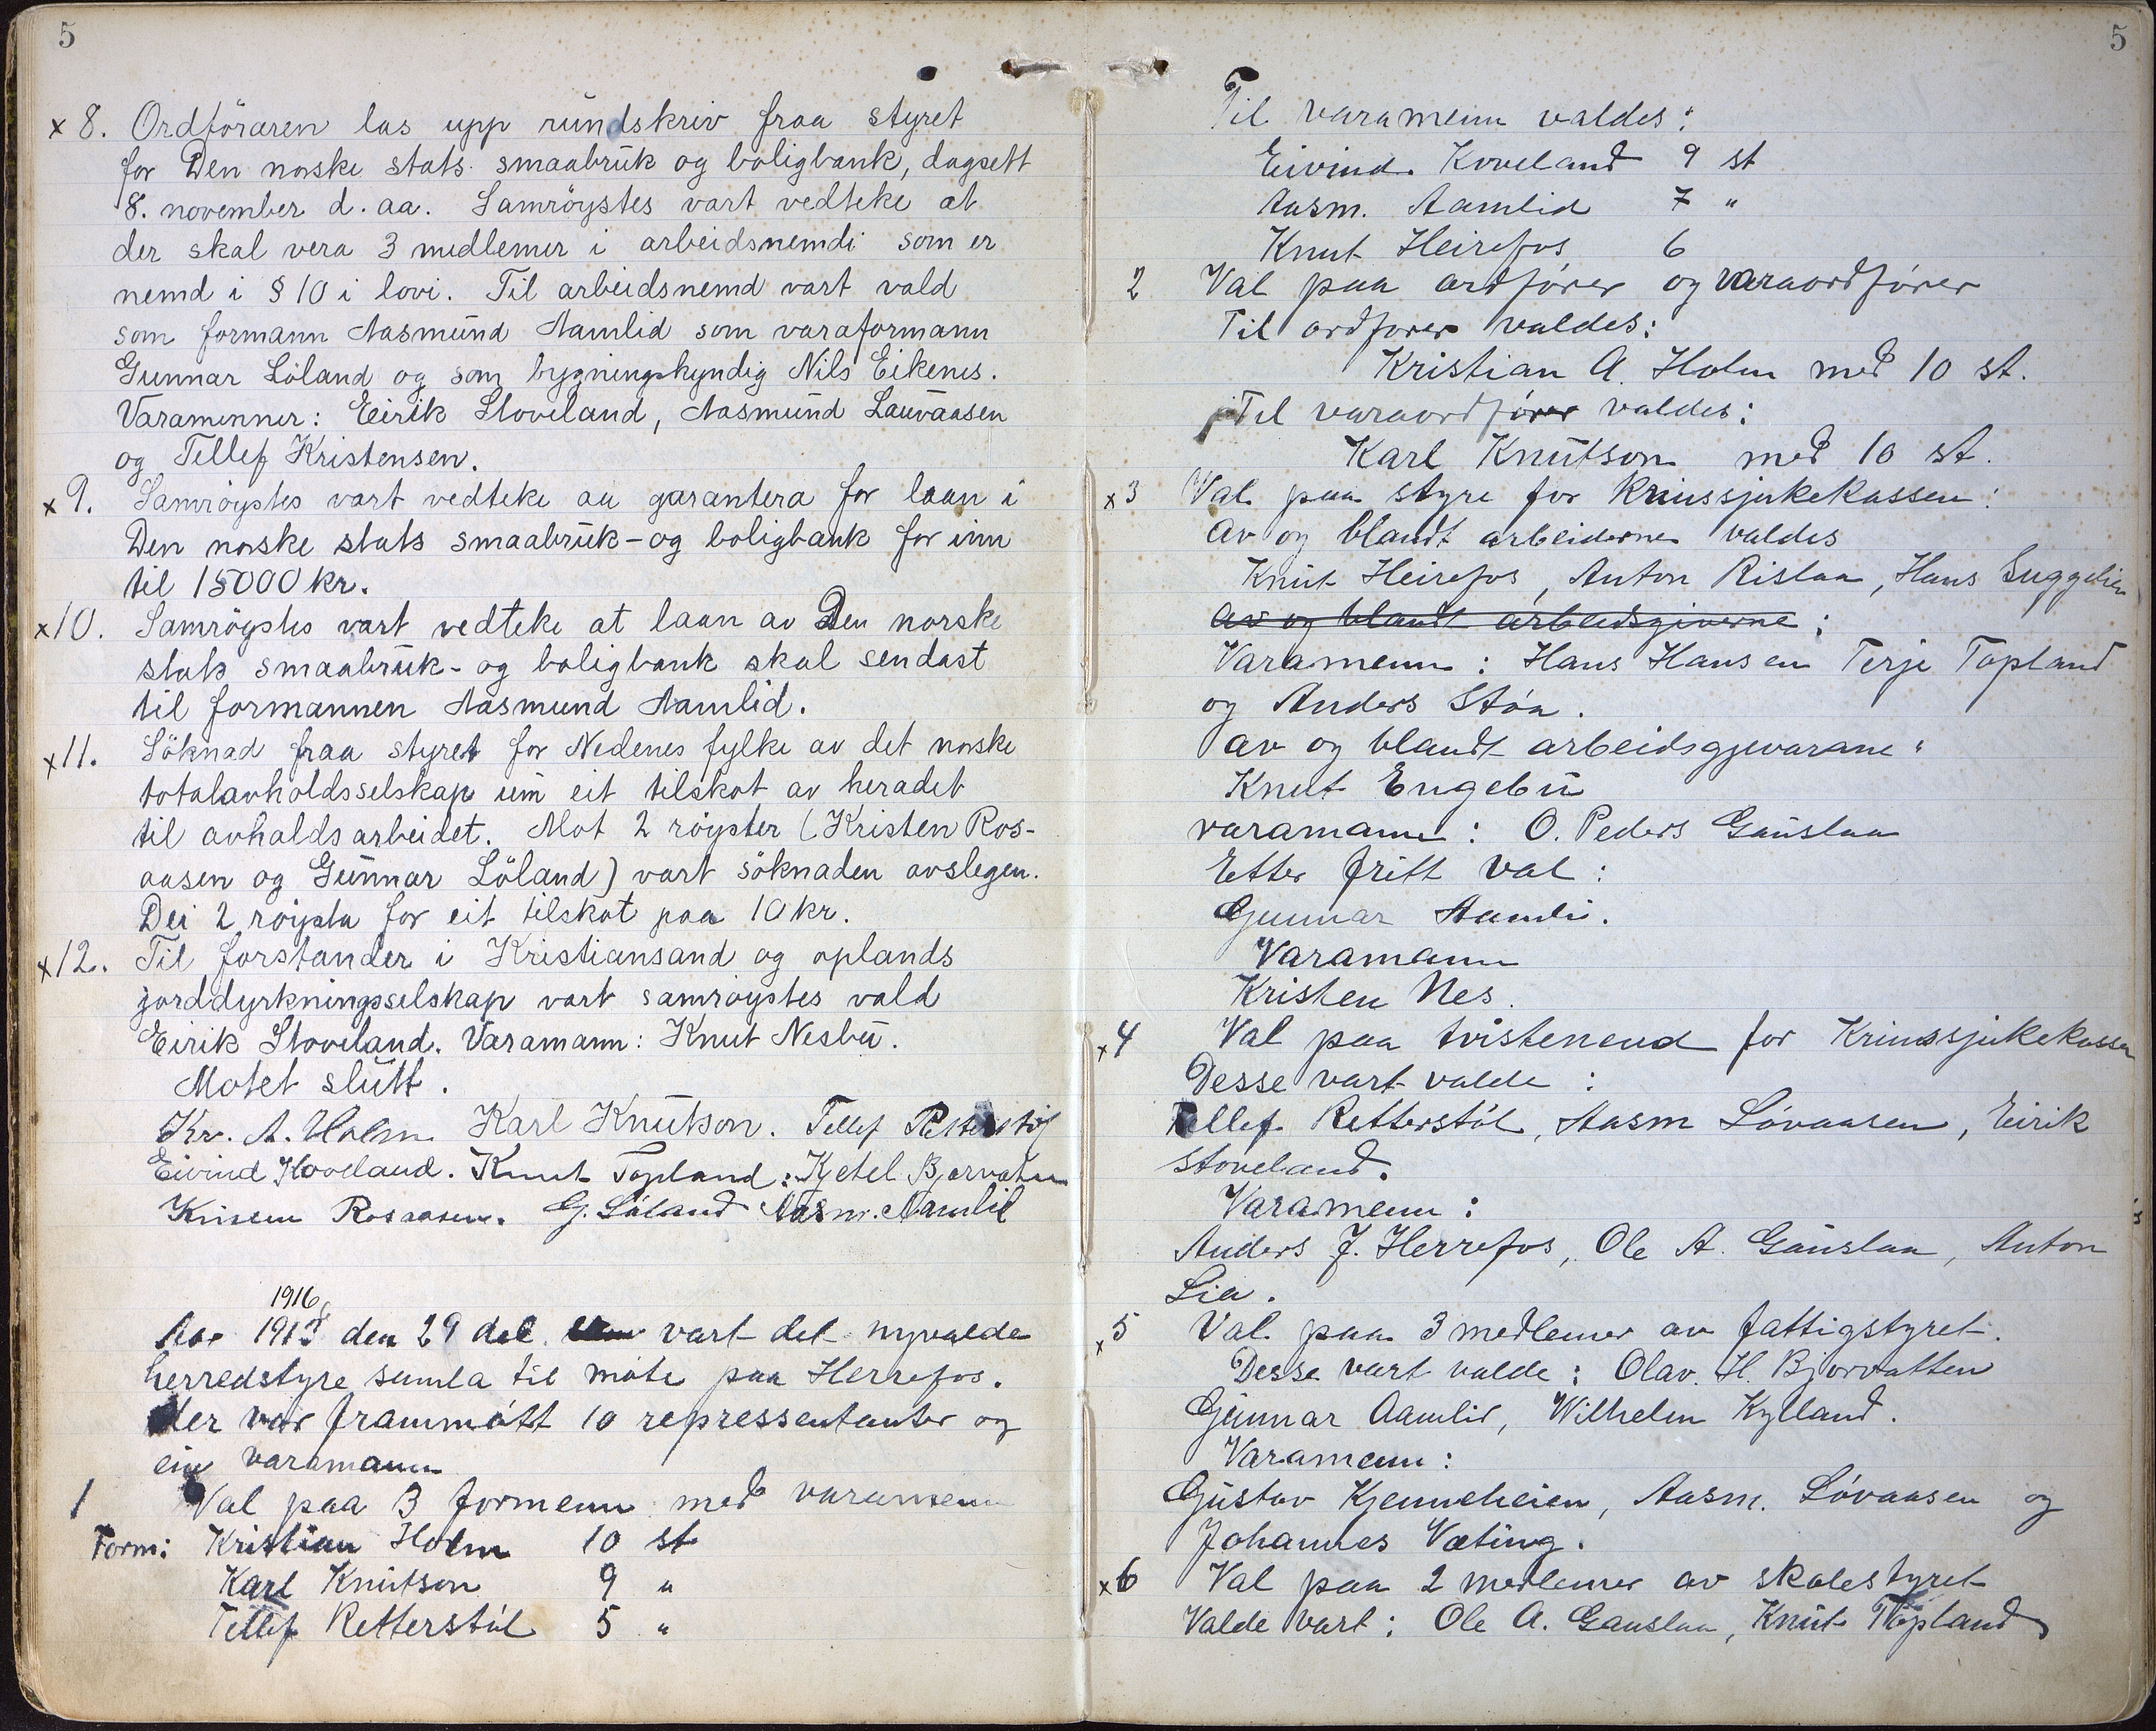 5
x 8. Ordföraren las upp rundskriv fraa styret
for Den norske stats smaabruk og boligbank, dagsett
8. november d. aa. Samröystes vart vedteke at
der skal vera 3 medlemer i arbeidsnemdi som er
nemd i § 10 i lovi. Til arbeidsnemd vart vald
som formann Aasmund Aamlid som varaformann
Gunnar Löland og som bygningskyndig Nils Eikenes.
Varamenner: Eirik Stoveland, Aasmund Lauvaasen
og Tellef Kristensen.
x 9. Samröystes vart vedteke aa garantera for laan i
Den norske stats smaabruk- og boligbank for inn
til 15000 kr.
x 10. Samröystes vart vedteke at laan av Den norske
stats smaabruk- og boligbank skal sendast
til formannen Aasmund Aamlid.
x 11. Söknad fraa styret for Nedenes fylke av det norske
totalavholdsselskap um eit tilskot av heradet
til avhaldsarbeidet. Mot 2 röyster (Kristen Ros-
aasen og Gunnar Löland) vart söknaden avslegen.
Dei 2 röysta for eit tilskot paa 10 kr.
x 12. Til forstander i Kristiansand og oplands
jorddyrkningsselskap vart samröystes vald
Eirik Stoveland. Varamann: Knut Nesbu.
Motet slutt.
Kr. A. Holm Karl Knutson. Tellef Retterstöl
Eivind Hoveland. Knut Topland. Kjetel Bjorvatn
Kristen Rosaasen. G. Löland Aasm. Aamlid
1916
Aar 1913 den 29 des. vart det nyvalde
herredstyre samla til möte paa Herrefos.
Der var frammött 10 repressentanter og
ein varamann
1 Val paa 3 formenn med varamenn
Form: Kristian Holm 10 st
Karl Knutson 9 "
Tellef Retterstöl 5 "
5
Til varamenn valdes:
Eivind. Hoveland 9 st
Aasm. Aamlid 7 "
Knut Heirefos 6
2 Val paa ordförer og varaordförer
Til ordforer valdes:
Kristian A. Holm med 10 st.
Til varaordförer valdes:
Karl Knutson med 10 st.
x 3 Val paa styre for Krinssjukekassen:
Av og blandt arbeiderne valdes
Knut Heirefos, Anton Rislaa, Hans Suggelien
Av og blandt arbeidsgiverne:
Varamenn: Hans Hansen Terje Topland
og Anders Stóa.
av og blandt arbeidsgjevarane:
Knut Engebu
varamann: O. Peders Gauslaa
Etter fritt val:
Gunnar Aamli.
Varamann
Kristen Nes.
x 4 Val paa tvistenemd for Krinssjukekassen
Desse vart valde:
Tellef Retterstöl, Aasm Lóvaasen, Eirik
Stoveland.
Varamenn:
Anders J. Herrefos, Ole A. Gauslaa, Anton
Lia.
x 5 Val paa 3 medlemer av fattigstyret.
Desse vart valde: Olav. H. Bjorvatten
Gunnar Aamlid, Wilhelm Kylland.
Varamenn:
Gustav Kjenneheien, Aasm. Lóvaasen og
Johannes Væting.
x 6 Val paa 2 medlemer av skolestyret
Valde vart: Ole A. Gauslaa, Knut Topland